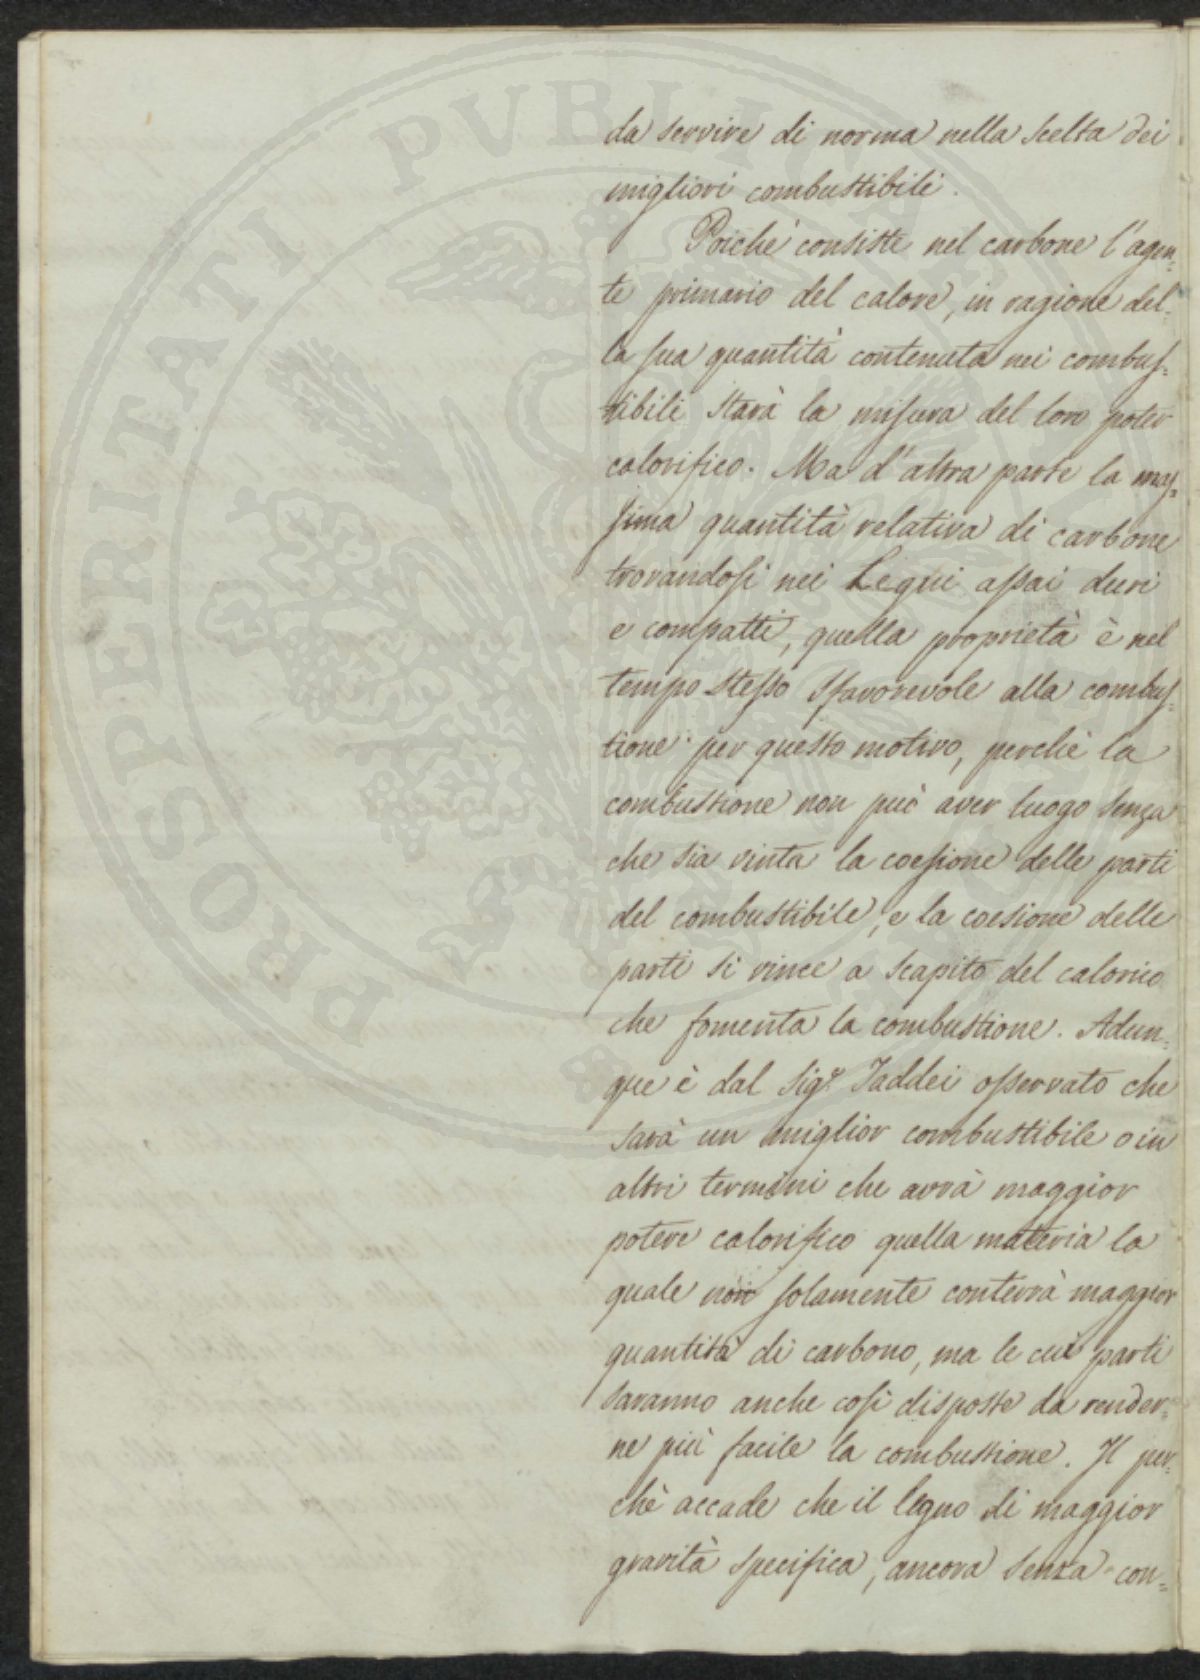 da servire di norma nella scelta dei
migliori combustibili.
Poichè consiste nel carbone l'agen=
te primario del calore, in ragione del=
la sua quantità contenuta nei combus=
tibili starà la misura del loro poter
calorifico. Ma d'altra parte la mas=
sima quantità relativa di carbone
trovandosi nei Legni assai duri
e compatti, quella proprietà è nel
tempo stesso sfavorevole alla combus=
tione per questo motivo, perchè la
combustione non può aver luogo senza
che sia vinta la coesione delle parti
del combustibile, e la coesione delle
parti si vince a scapito del calorico
che fomenta la combustione. Adun=
que è dal Sigr. Taddei osservato che
sarà un miglior combustibile o in
altri termini che avrà maggior
potere calorifico quella materia la
quale non solamente conterrà maggior
quantità di carbono, ma le cui parti
saranno anche così disposte da render=
ne più facile la combustione. Il per=
chè accade che il legno di maggior
gravità specifica, ancora senza con=
PROSPERITATI PUBLICAE